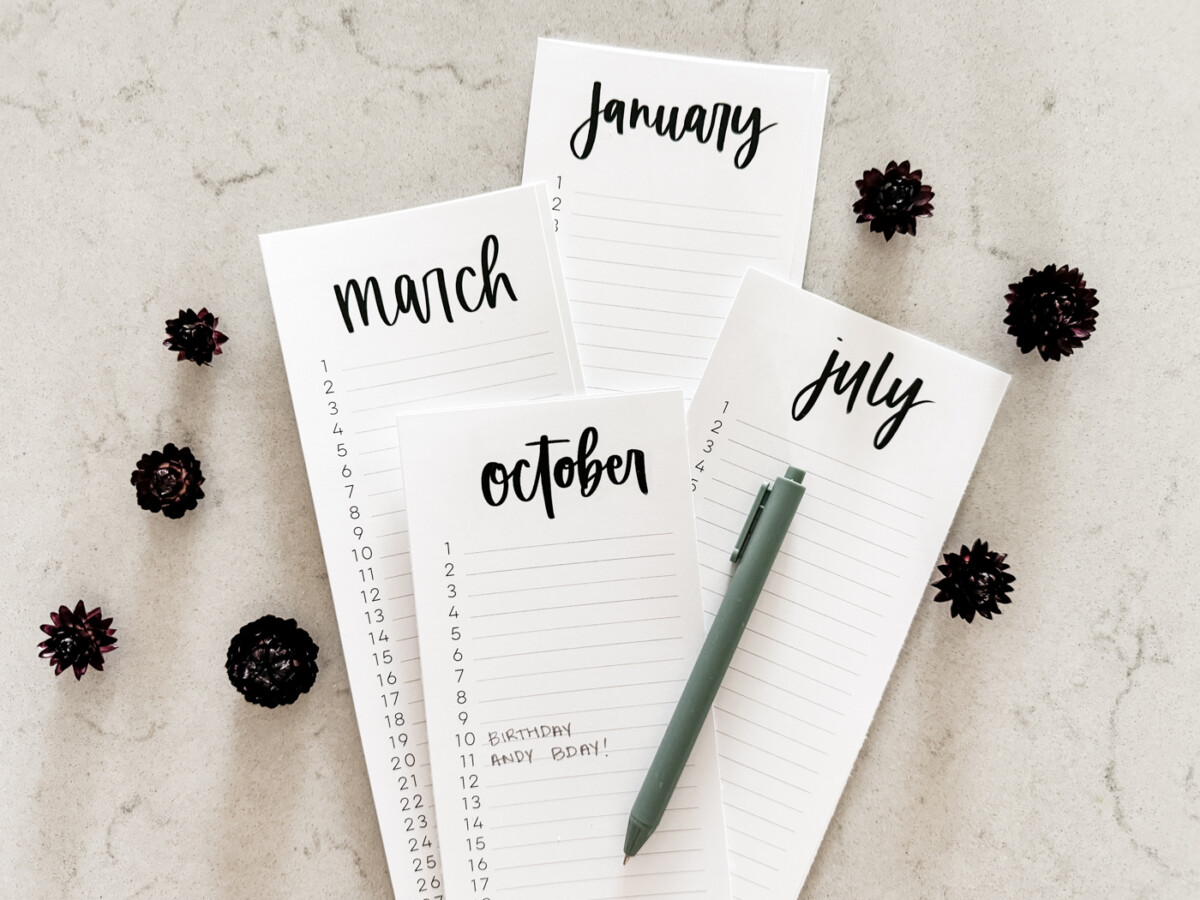 january
1
2
3
march
1
2
3
4
5
6
7
8
9
10
11
12
13
14
15
16
17
18
19
20
21
22
23
24
25
26
27
july
1
2
3
4
5
october
1
2
3
4
5
6
7
8
9
10 BIRTHDAY
11 ANDY BDAY!
12
13
14
15
16
17